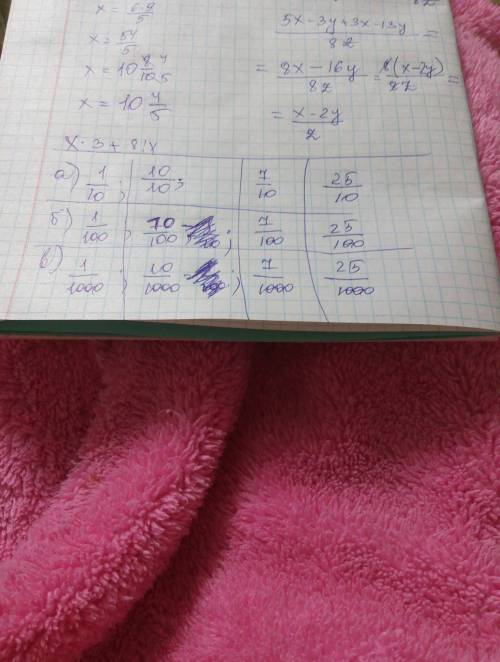 x = 6·9/5
x = 54/5
x = 10 8/10
x = 10 4/5
5x-3y+3x-13y/8z =
= 8x-16y/8z = 8(x-2y)/8z =
= x-2y/z
а) 1/10; 10/10; 7/10 25/10
б) 1/100; 10/100; 7/100 25/100
в) 1/1000; 10/1000; 7/1000 25/1000